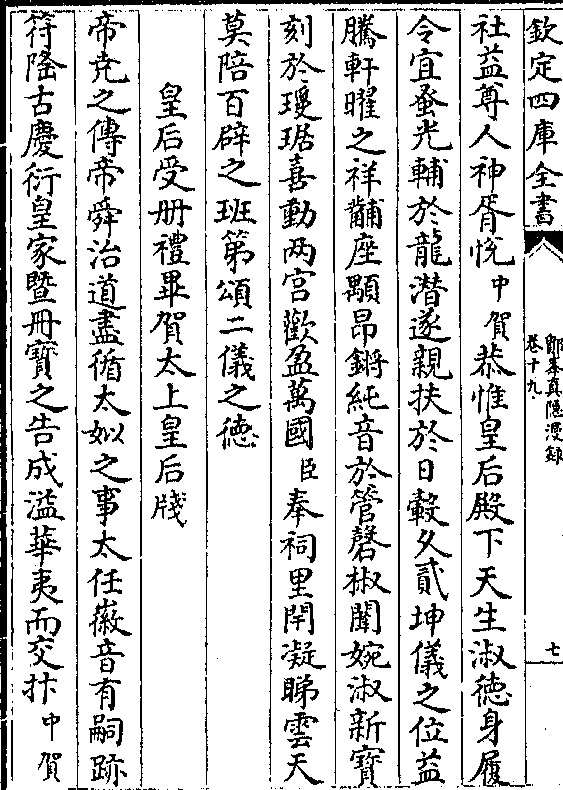 欽定四庫全書
鄮峯真隱漫録
卷十九
七
社益尊人神胥悦中賀恭惟皇后殿下天生淑徳身履
令宜蚤光輔於龍潛遂親扶於日轂久貳坤儀之位益
騰軒曜之祥黼座顒昻鏘純音於管磬椒闈婉淑新寳
刻於瓊琚喜動两宫歡盈萬國臣奉祠里閈凝睇雲天
莫陪百辟之班第頌二儀之徳
皇后受册禮畢賀太上皇后牋
帝尭之傳帝舜治道盡循太姒之事太任徽音有嗣跡
符隆古慶衍皇家暨冊寳之告成溢華夷而交抃中賀